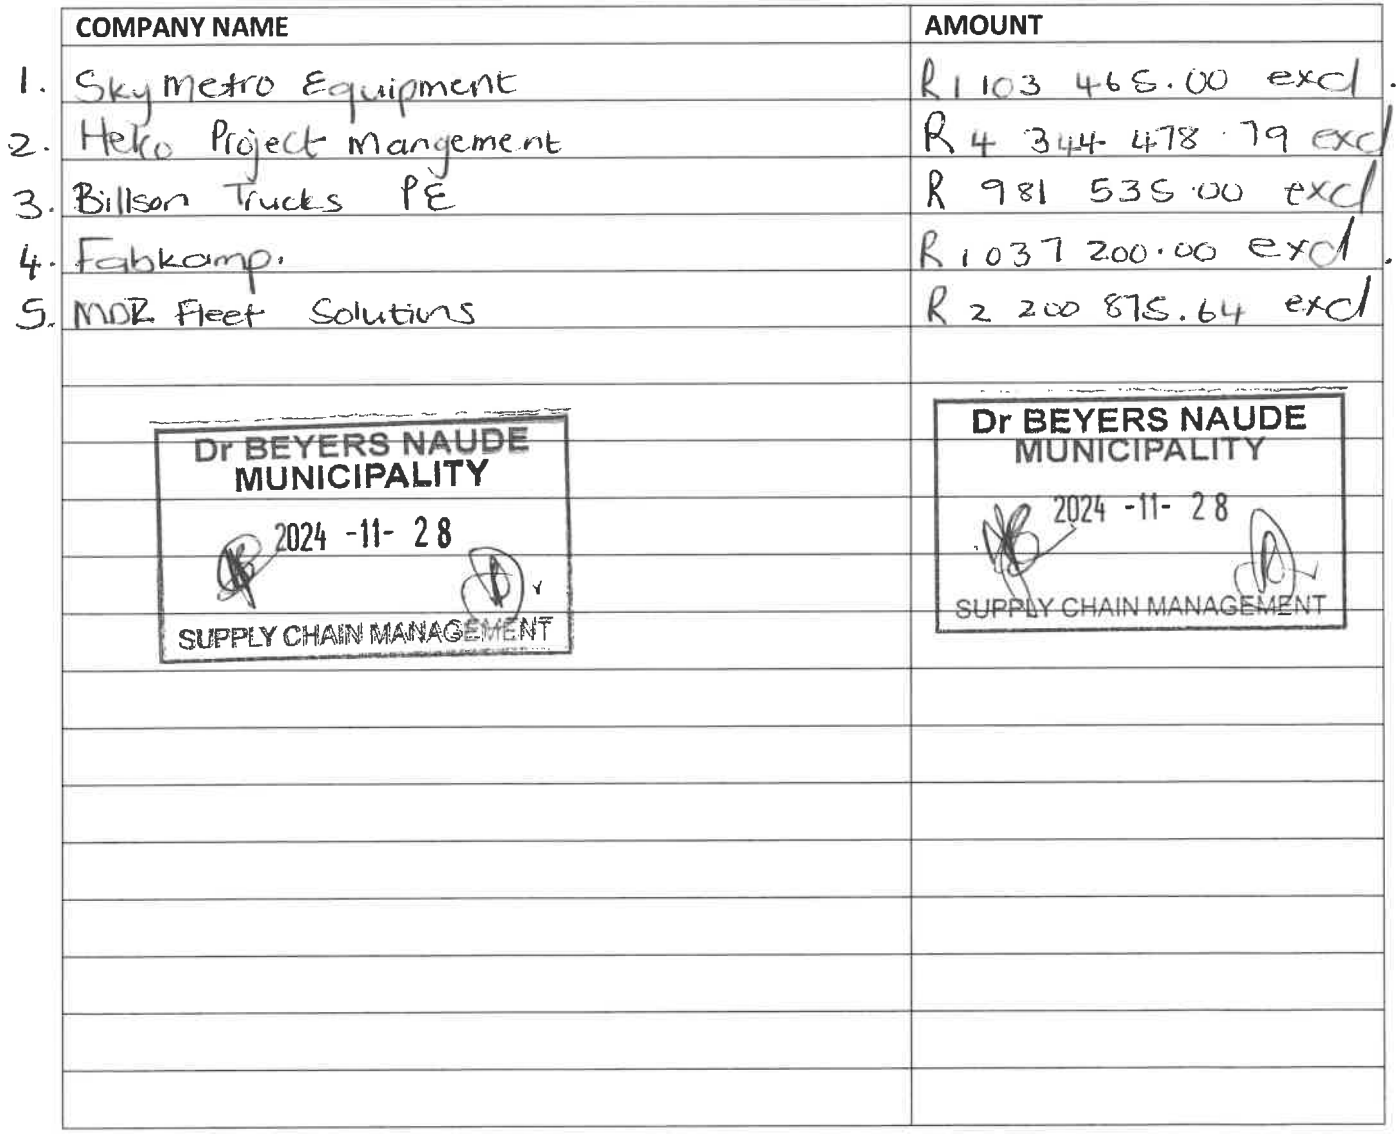 COMPANY NAME AMOUNT
1. Sky metro Equipment R1 103 465.00 excl.
2. Heko Project mangement R 4 344 478.79 excl
3. Billson Trucks PE R 981 535.00 excl
4. Fabkomp. R1 037 200.00 excl.
5. MDR Fleet Solutions R 2 200 875.64 excl
Dr BEYERS NAUDE
MUNICIPALITY
2024 -11- 28
SUPPLY CHAIN MANAGEMENT
Dr BEYERS NAUDE
MUNICIPALITY
2024 -11- 28
SUPPLY CHAIN MANAGEMENT